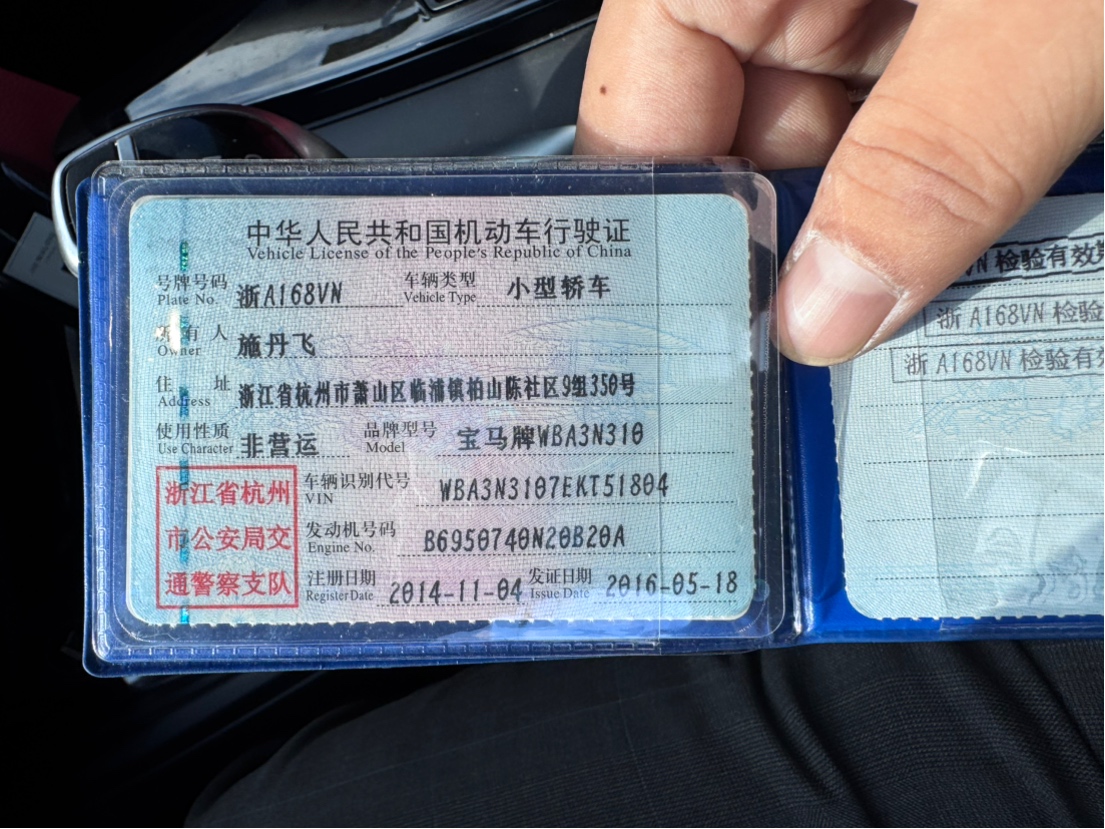 中华人民共和国机动车行驶证
Vehicle License of the People's Republic of China
号牌号码 浙A168VN 车辆类型 小型轿车
Plate No. Vehicle Type
所有人 施丹飞
Owner
住址 浙江省杭州市萧山区临浦镇柏山陈社区9组350号
Address
使用性质 非营运 品牌型号 宝马牌WBA3N310
Use Character Model
浙江省杭州
市公安局交
通警察支队
车辆识别代号 WBA3N3107EKT51804
VIN
发动机号码 B6950740N20B20A
Engine No.
注册日期 2014-11-04 发证日期 2016-05-18
Register Date Issue Date
VN 检验有效期
浙 A168VN 检验
浙 A168VN 检验有效